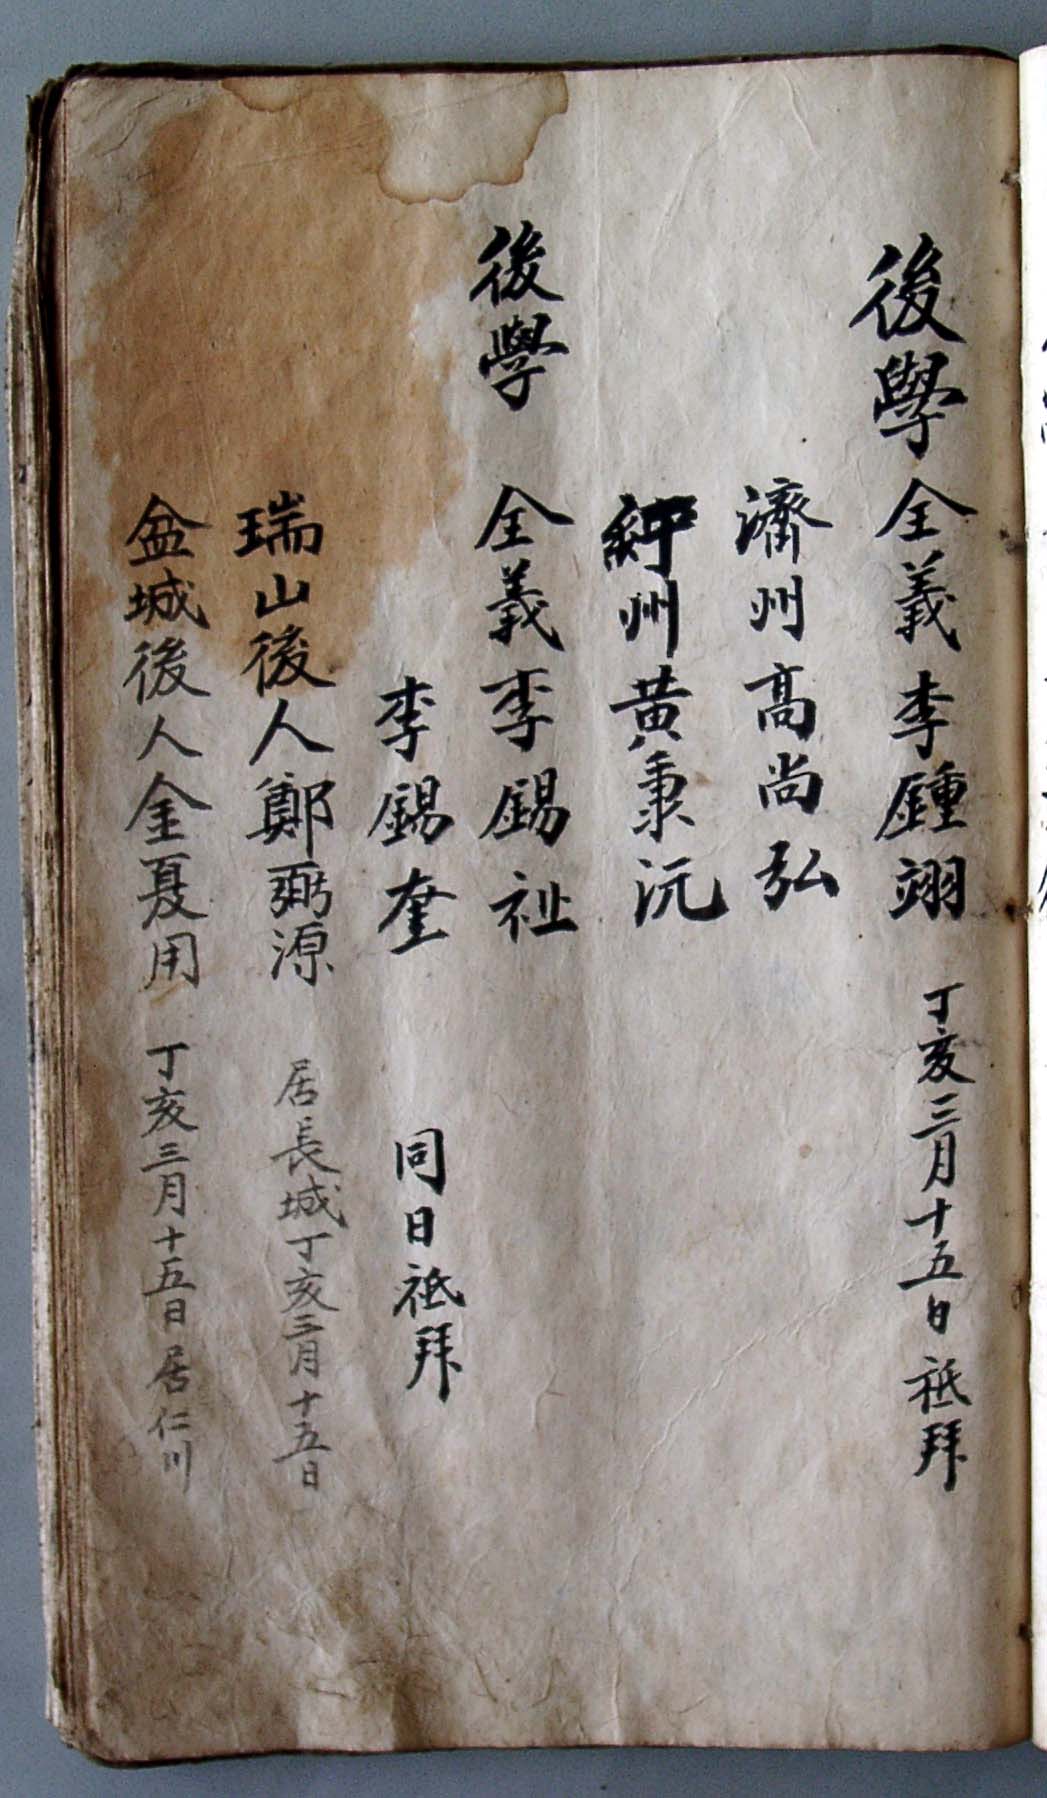 後學 全義 李鍾翊 丁亥三月十五日 祗拜
濟州 高尚弘
紆州 黃秉沅
後學 全義 李錫祉
李錫奎 同日祗拜
瑞山後人 鄭弼源 居長城丁亥三月十五日
盆城後人 金夏用 丁亥三月十五日居仁川